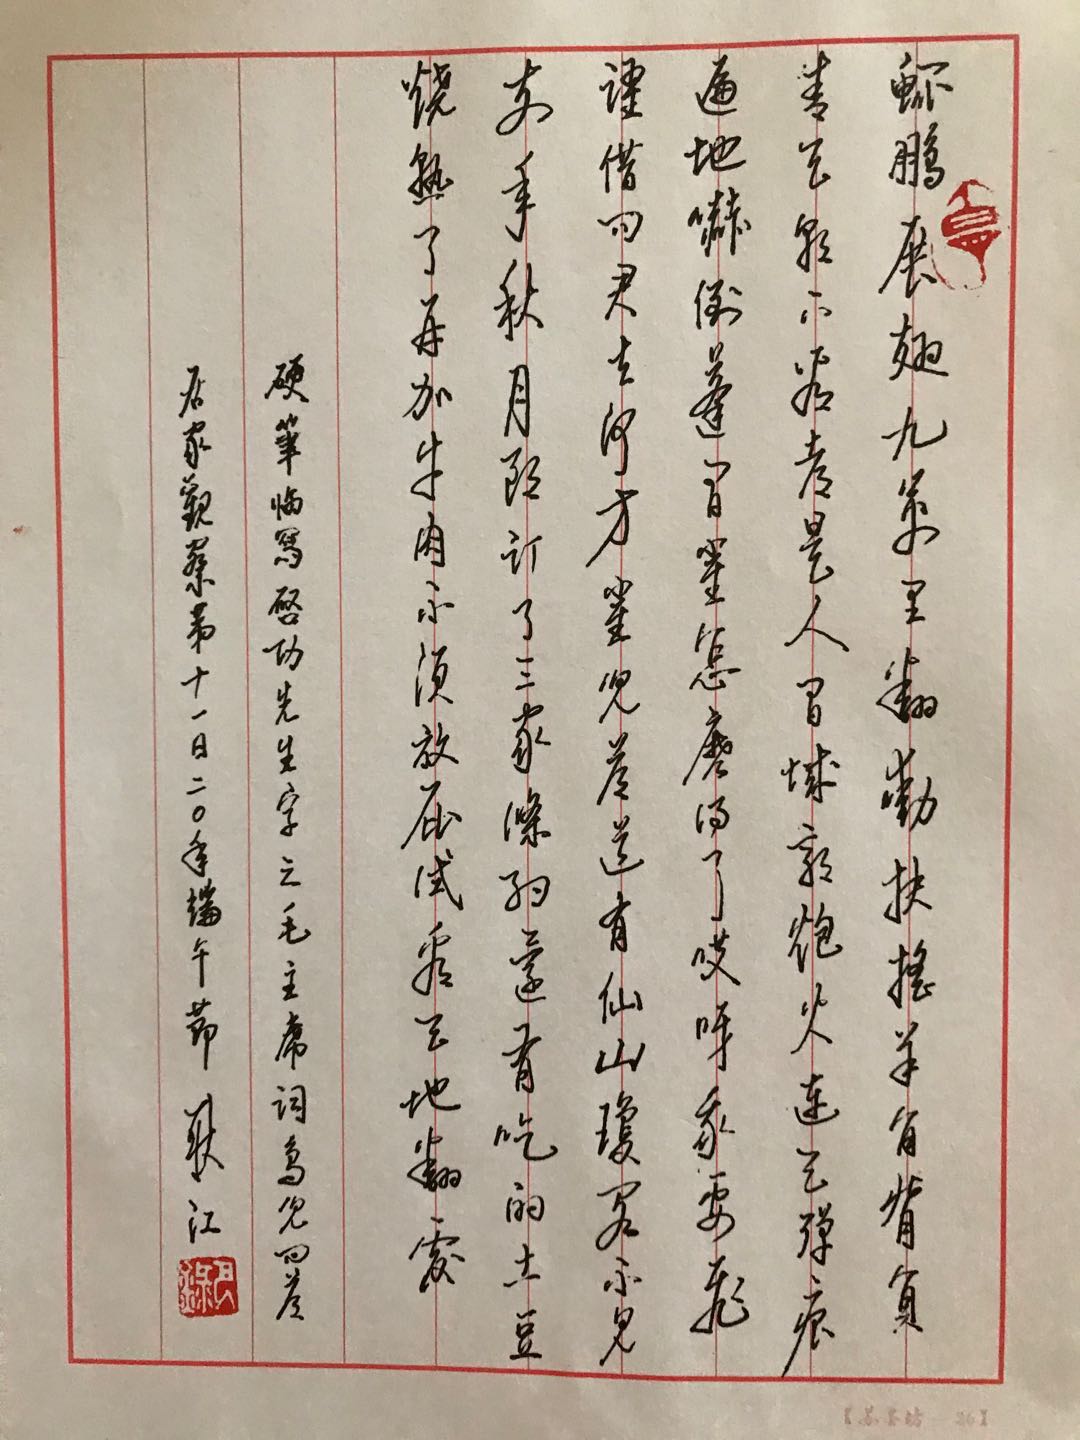 鲲鹏展翅九万里翻动扶摇羊角背负
青天朝下看都是人间城郭炮火连天弹痕
遍地嚇倒蓬间雀怎麽得了哎呀我要飞
谨借问君去何方雀儿荅道有仙山琼阁不见
前年秋月朗订了三家条约还有吃的土豆
烧熟了再加牛肉不须放屁试看天地翻覆
硬笔临写启功先生字之毛主席词鸟儿问荅
居家观察第十一日二〇年端午节 江